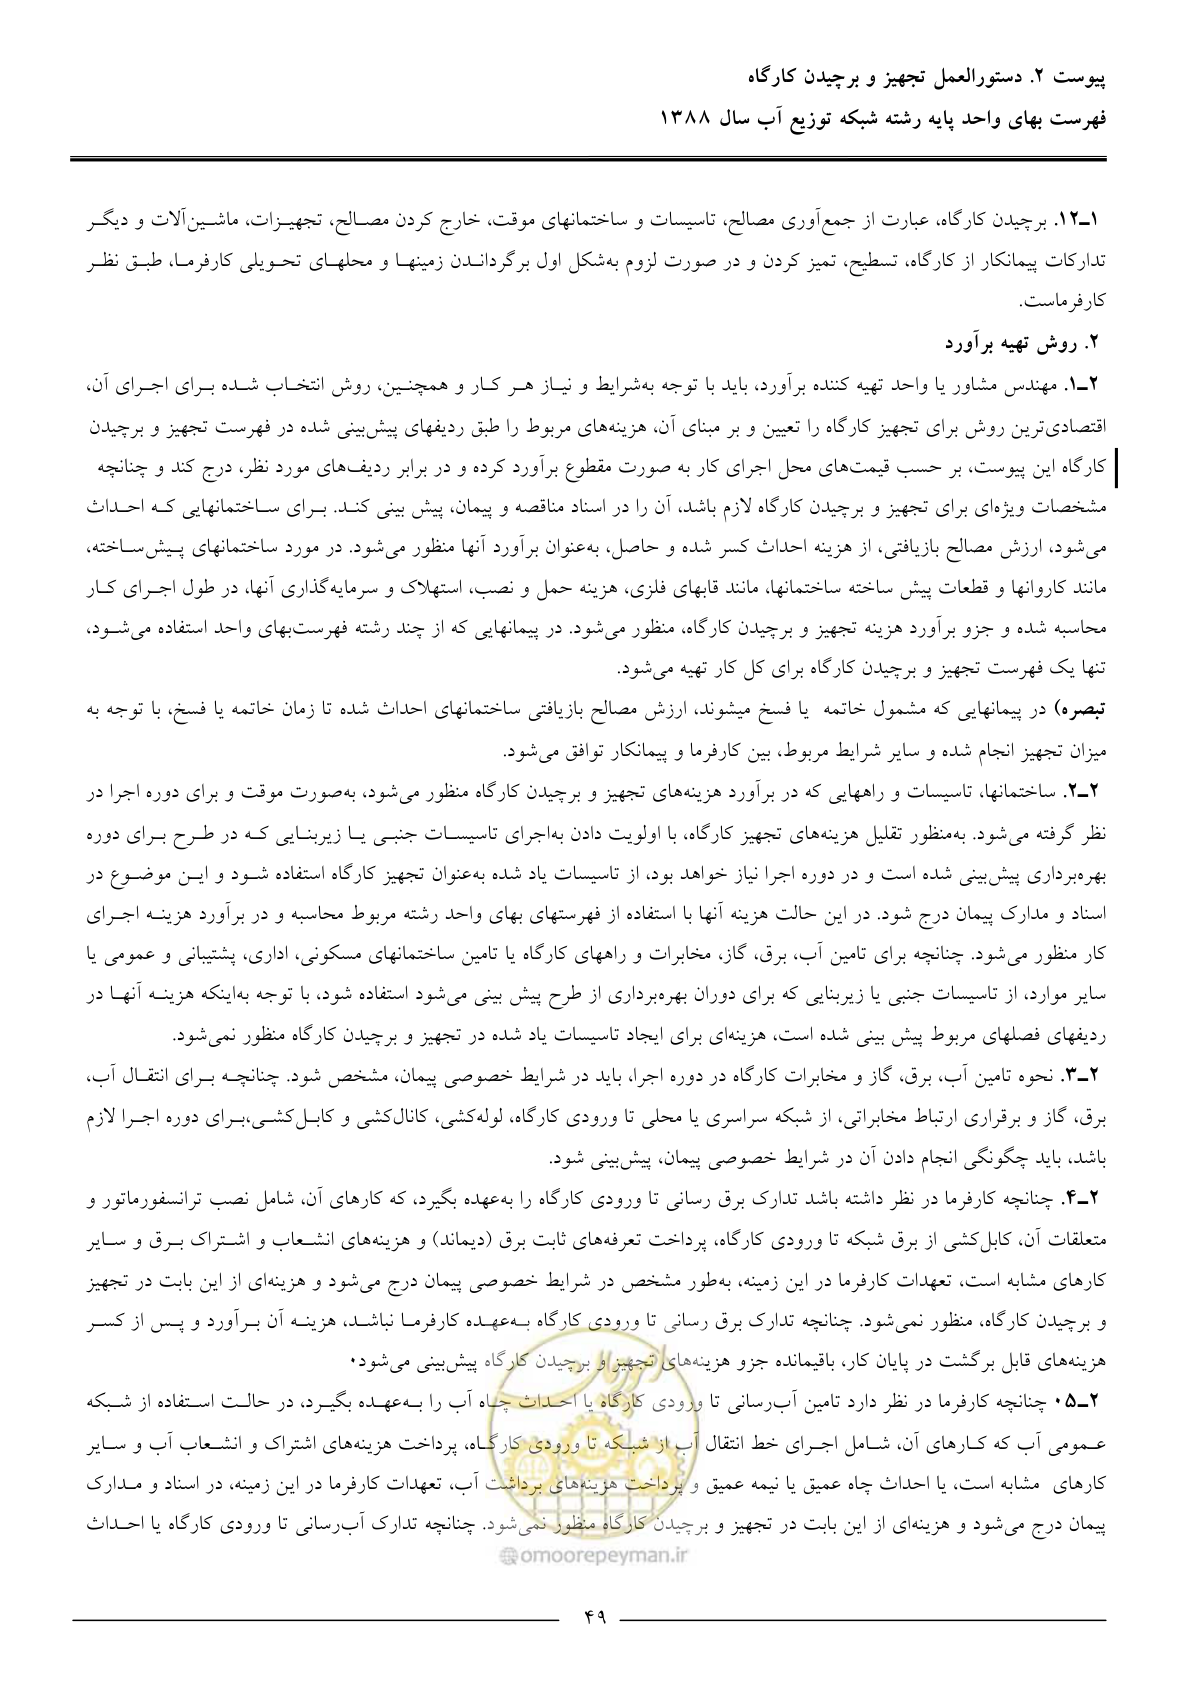 پیوست ۲. دستورالعمل تجهیز و برچیدن کارگاه
فهرست بهای واحد پایه رشته شبکه توزیع آب سال ۱۳۸۸
۱ـ۱۲. برچیدن کارگاه، عبارت از جمع‌آوری مصالح، تاسیسات و ساختمانهای موقت، خارج کردن مصالح، تجهیزات، ماشین‌آلات و دیگر
تدارکات پیمانکار از کارگاه، تسطیح، تمیز کردن و در صورت لزوم به‌شکل اول برگرداندن زمینها و محلهای تحویلی کارفرما، طبق نظر
کارفرماست.
۲. روش تهیه برآورد
۲ـ۱. مهندس مشاور یا واحد تهیه کننده برآورد، باید با توجه به‌شرایط و نیاز هر کار و همچنین، روش انتخاب شده برای اجرای آن،
اقتصادی‌ترین روش برای تجهیز کارگاه را تعیین و بر مبنای آن، هزینه‌های مربوط را طبق ردیفهای پیش‌بینی شده در فهرست تجهیز و برچیدن
کارگاه این پیوست، بر حسب قیمت‌های محل اجرای کار به صورت مقطوع برآورد کرده و در برابر ردیف‌های مورد نظر، درج کند و چنانچه
مشخصات ویژه‌ای برای تجهیز و برچیدن کارگاه لازم باشد، آن را در اسناد مناقصه و پیمان، پیش بینی کند. برای ساختمانهایی که احداث
می‌شود، ارزش مصالح بازیافتی، از هزینه احداث کسر شده و حاصل، به‌عنوان برآورد آنها منظور می‌شود. در مورد ساختمانهای پیش‌ساخته،
مانند کاروانها و قطعات پیش ساخته ساختمانها، مانند قابهای فلزی، هزینه حمل و نصب، استهلاک و سرمایه‌گذاری آنها، در طول اجرای کار
محاسبه شده و جزو برآورد هزینه تجهیز و برچیدن کارگاه، منظور می‌شود. در پیمانهایی که از چند رشته فهرست‌بهای واحد استفاده می‌شود،
تنها یک فهرست تجهیز و برچیدن کارگاه برای کل کار تهیه می‌شود.
تبصره) در پیمانهایی که مشمول خاتمه یا فسخ میشوند، ارزش مصالح بازیافتی ساختمانهای احداث شده تا زمان خاتمه یا فسخ، با توجه به
میزان تجهیز انجام شده و سایر شرایط مربوط، بین کارفرما و پیمانکار توافق می‌شود.
۲ـ۲. ساختمانها، تاسیسات و راههایی که در برآورد هزینه‌های تجهیز و برچیدن کارگاه منظور می‌شود، به‌صورت موقت و برای دوره اجرا در
نظر گرفته می‌شود. به‌منظور تقلیل هزینه‌های تجهیز کارگاه، با اولویت دادن به‌اجرای تاسیسات جنبی یا زیربنایی که در طرح برای دوره
بهره‌برداری پیش‌بینی شده است و در دوره اجرا نیاز خواهد بود، از تاسیسات یاد شده به‌عنوان تجهیز کارگاه استفاده شود و این موضوع در
اسناد و مدارک پیمان درج شود. در این حالت هزینه آنها با استفاده از فهرستهای بهای واحد رشته مربوط محاسبه و در برآورد هزینه اجرای
کار منظور می‌شود. چنانچه برای تامین آب، برق، گاز، مخابرات و راههای کارگاه یا تامین ساختمانهای مسکونی، اداری، پشتیبانی و عمومی یا
سایر موارد، از تاسیسات جنبی یا زیربنایی که برای دوران بهره‌برداری از طرح پیش بینی می‌شود استفاده شود، با توجه به‌اینکه هزینه آنها در
ردیفهای فصلهای مربوط پیش بینی شده است، هزینه‌ای برای ایجاد تاسیسات یاد شده در تجهیز و برچیدن کارگاه منظور نمی‌شود.
۲ـ۳. نحوه تامین آب، برق، گاز و مخابرات کارگاه در دوره اجرا، باید در شرایط خصوصی پیمان، مشخص شود. چنانچه برای انتقال آب،
برق، گاز و برقراری ارتباط مخابراتی، از شبکه سراسری یا محلی تا ورودی کارگاه، لوله‌کشی، کانال‌کشی و کابل‌کشی،برای دوره اجرا لازم
باشد، باید چگونگی انجام دادن آن در شرایط خصوصی پیمان، پیش‌بینی شود.
۲ـ۴. چنانچه کارفرما در نظر داشته باشد تدارک برق رسانی تا ورودی کارگاه را به‌عهده بگیرد، که کارهای آن، شامل نصب ترانسفورماتور و
متعلقات آن، کابل‌کشی از برق شبکه تا ورودی کارگاه، پرداخت تعرفه‌های ثابت برق (دیماند) و هزینه‌های انشعاب و اشتراک برق و سایر
کارهای مشابه است، تعهدات کارفرما در این زمینه، به‌طور مشخص در شرایط خصوصی پیمان درج می‌شود و هزینه‌ای از این بابت در تجهیز
و برچیدن کارگاه، منظور نمی‌شود. چنانچه تدارک برق رسانی تا ورودی کارگاه به‌عهده کارفرما نباشد، هزینه آن برآورد و پس از کسر
هزینه‌های قابل برگشت در پایان کار، باقیمانده جزو هزینه‌های تجهیز و برچیدن کارگاه پیش‌بینی می‌شود۰
۲ـ۵۰ چنانچه کارفرما در نظر دارد تامین آب‌رسانی تا ورودی کارگاه یا احداث چاه آب را به‌عهده بگیرد، در حالت استفاده از شبکه
عمومی آب که کارهای آن، شامل اجرای خط انتقال آب از شبکه تا ورودی کارگاه، پرداخت هزینه‌های اشتراک و انشعاب آب و سایر
کارهای مشابه است، یا احداث چاه عمیق یا نیمه عمیق و پرداخت هزینه‌های برداشت آب، تعهدات کارفرما در این زمینه، در اسناد و مدارک
پیمان درج می‌شود و هزینه‌ای از این بابت در تجهیز و برچیدن کارگاه منظور نمی‌شود. چنانچه تدارک آب‌رسانی تا ورودی کارگاه یا احداث
امور پیمان
@omoorepeyman.ir
۴۹